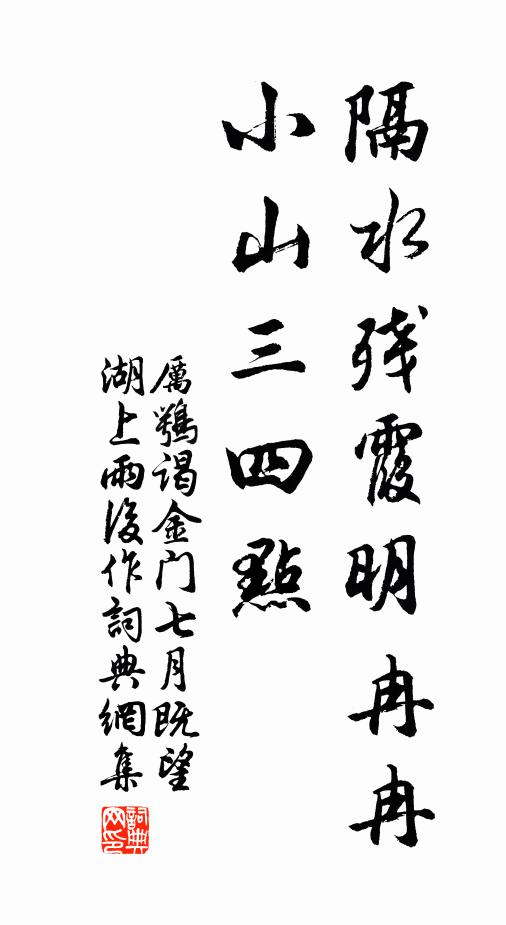 隔水残霞明冉冉
小山三四點
厲鶚谒金门七月既望
湖上雨後作詞典網集
詞典
网印